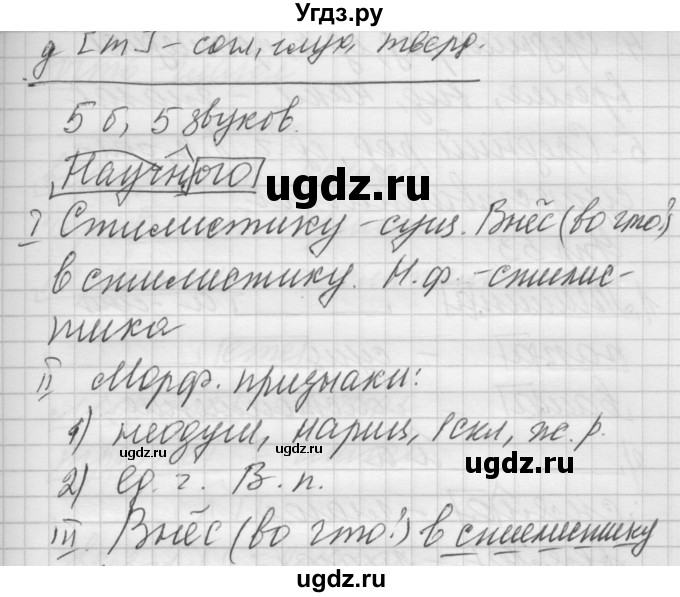 Угдз.ру
д [т] – согл, глух, тверд.
5 б, 5 звуков.
Научного
ugdz.ru ugdz.ru
I Стилистику – сущ. Внёс (во что?)
в стилистику. Н.ф. – стилис-
тика
II Морф. признаки:
1) неодуш, нариц, 1 скл, ж. р.
ugdz.ru ugdz.ru
2) Ед. ч. В. п.
III Внёс (во что?) в стилистику
ugdz.ru